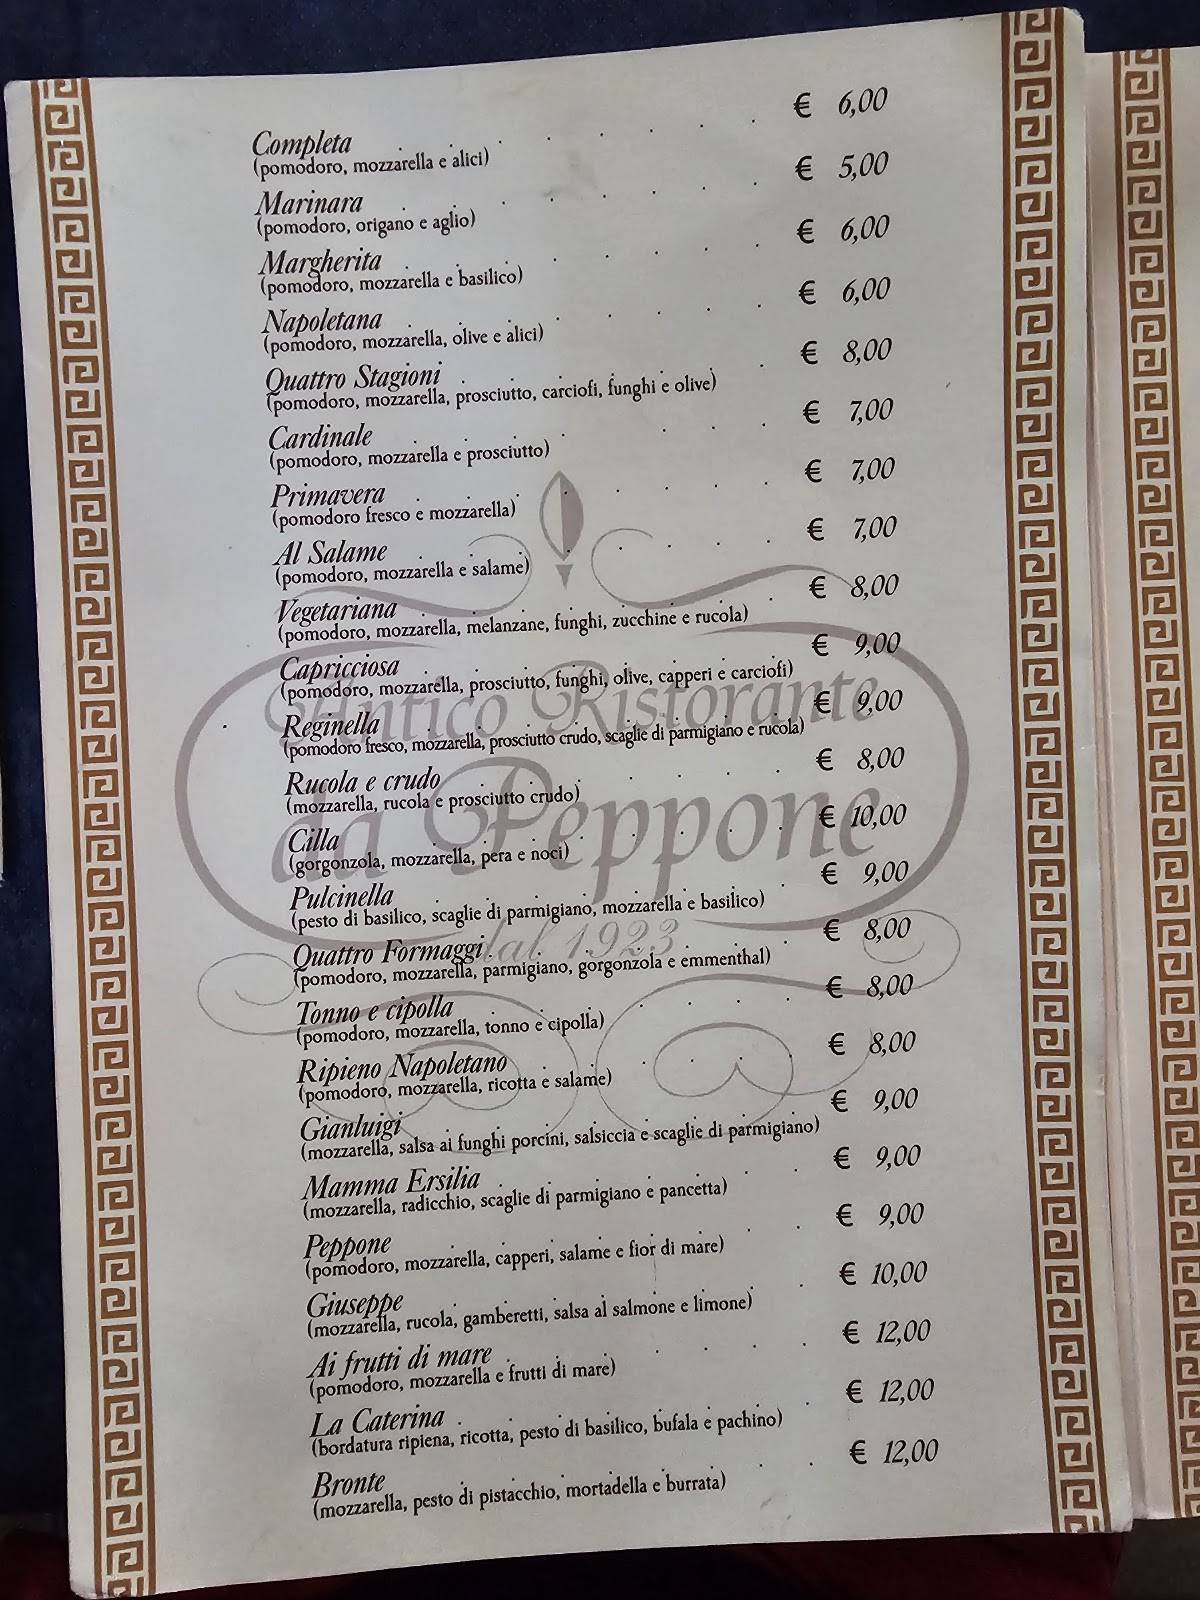 Completa € 6,00
(pomodoro, mozzarella e alici)
Marinara € 5,00
(pomodoro, origano e aglio)
Margherita € 6,00
(pomodoro, mozzarella e basilico)
Napoletana € 6,00
(pomodoro, mozzarella, olive e alici)
Quattro Stagioni € 8,00
(pomodoro, mozzarella, prosciutto, carciofi, funghi e olive)
Cardinale € 7,00
(pomodoro, mozzarella e prosciutto)
Primavera € 7,00
(pomodoro fresco e mozzarella)
Al Salame € 7,00
(pomodoro, mozzarella e salame)
Vegetariana € 8,00
(pomodoro, mozzarella, melanzane, funghi, zucchine e rucola)
Capricciosa € 9,00
(pomodoro, mozzarella, prosciutto, funghi, olive, capperi e carciofi)
Reginella € 9,00
(pomodoro fresco, mozzarella, prosciutto crudo, scaglie di parmigiano e rucola)
Rucola e crudo € 8,00
(mozzarella, rucola e prosciutto crudo)
Cilla € 10,00
(gorgonzola, mozzarella, pera e noci)
Pulcinella € 9,00
(pesto di basilico, scaglie di parmigiano, mozzarella e basilico)
Quattro Formaggi € 8,00
(pomodoro, mozzarella, parmigiano, gorgonzola e emmenthal)
Tonno e cipolla € 8,00
(pomodoro, mozzarella, tonno e cipolla)
Ripieno Napoletano € 8,00
(pomodoro, mozzarella, ricotta e salame)
Gianluigi € 9,00
(mozzarella, salsa ai funghi porcini, salsiccia e scaglie di parmigiano)
Mamma Ersilia € 9,00
(mozzarella, radicchio, scaglie di parmigiano e pancetta)
Peppone € 9,00
(pomodoro, mozzarella, capperi, salame e fior di mare)
Giuseppe € 10,00
(mozzarella, rucola, gamberetti, salsa al salmone e limone)
Ai frutti di mare € 12,00
(pomodoro, mozzarella e frutti di mare)
La Caterina € 12,00
(bordatura ripiena, ricotta, pesto di basilico, bufala e pachino)
Bronte € 12,00
(mozzarella, pesto di pistacchio, mortadella e burrata)
Antico Ristorante
da Peppone
dal 1923